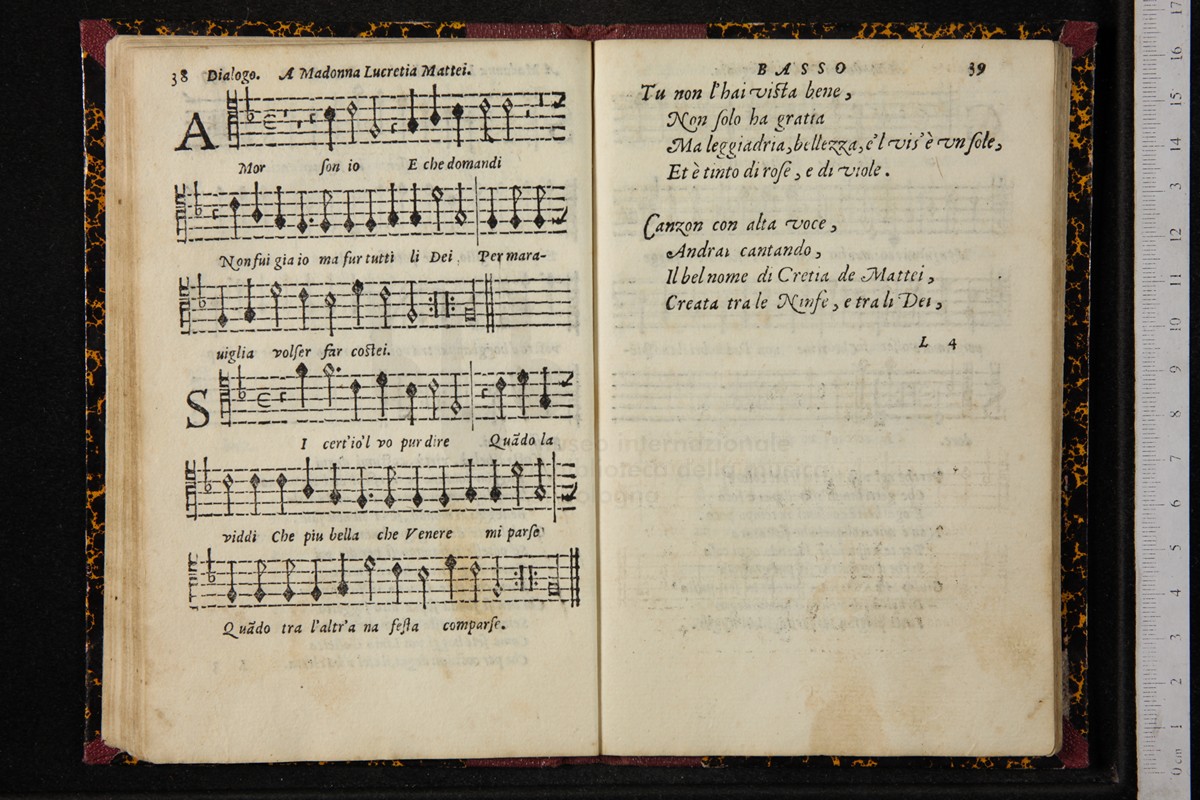 38 Dialogo. A Madonna Lucretia Mattei.
A
Mor son io E che domandi
Non fui gia io ma fur tutti li Dei Per mara-
uiglia volser far costei.
S
I cert'io'l vo pur dire Quãdo la
viddi Che piu bella che Venere mi parse
Quãdo tra l'altr'a na festa comparse.
BASSO 39
Tu non l'hai vista bene,
Non solo ha gratta
Ma leggiadria, bellezza, e'l vis'è vn sole,
Et è tinto di rose, e di viole.
Canzon con alta voce,
Andrai cantando,
Il bel nome di Cretia de Mattei,
Creata tra le Ninfe, e tra li Dei,
L 4
museo internazionale
biblioteca della musica
bologna
0 cm 1 2 3 4 5 6 7 8 9 10 11 12 13 14 15 16 17